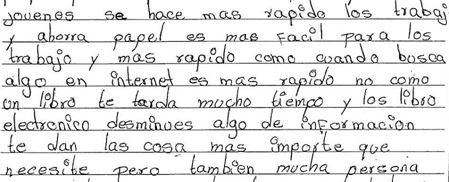 jovenes se hace mas rapido los trabaj
y ahorra papel es mas facil para los
trabajo y mas rapido como cuando busca
algo en internet es mas rapido no como
un libro te tarda mucho tiempo y los libro
electronico desminues algo de informacion
te dan las cosa mas importe que
necesite pero tambien mucha persona